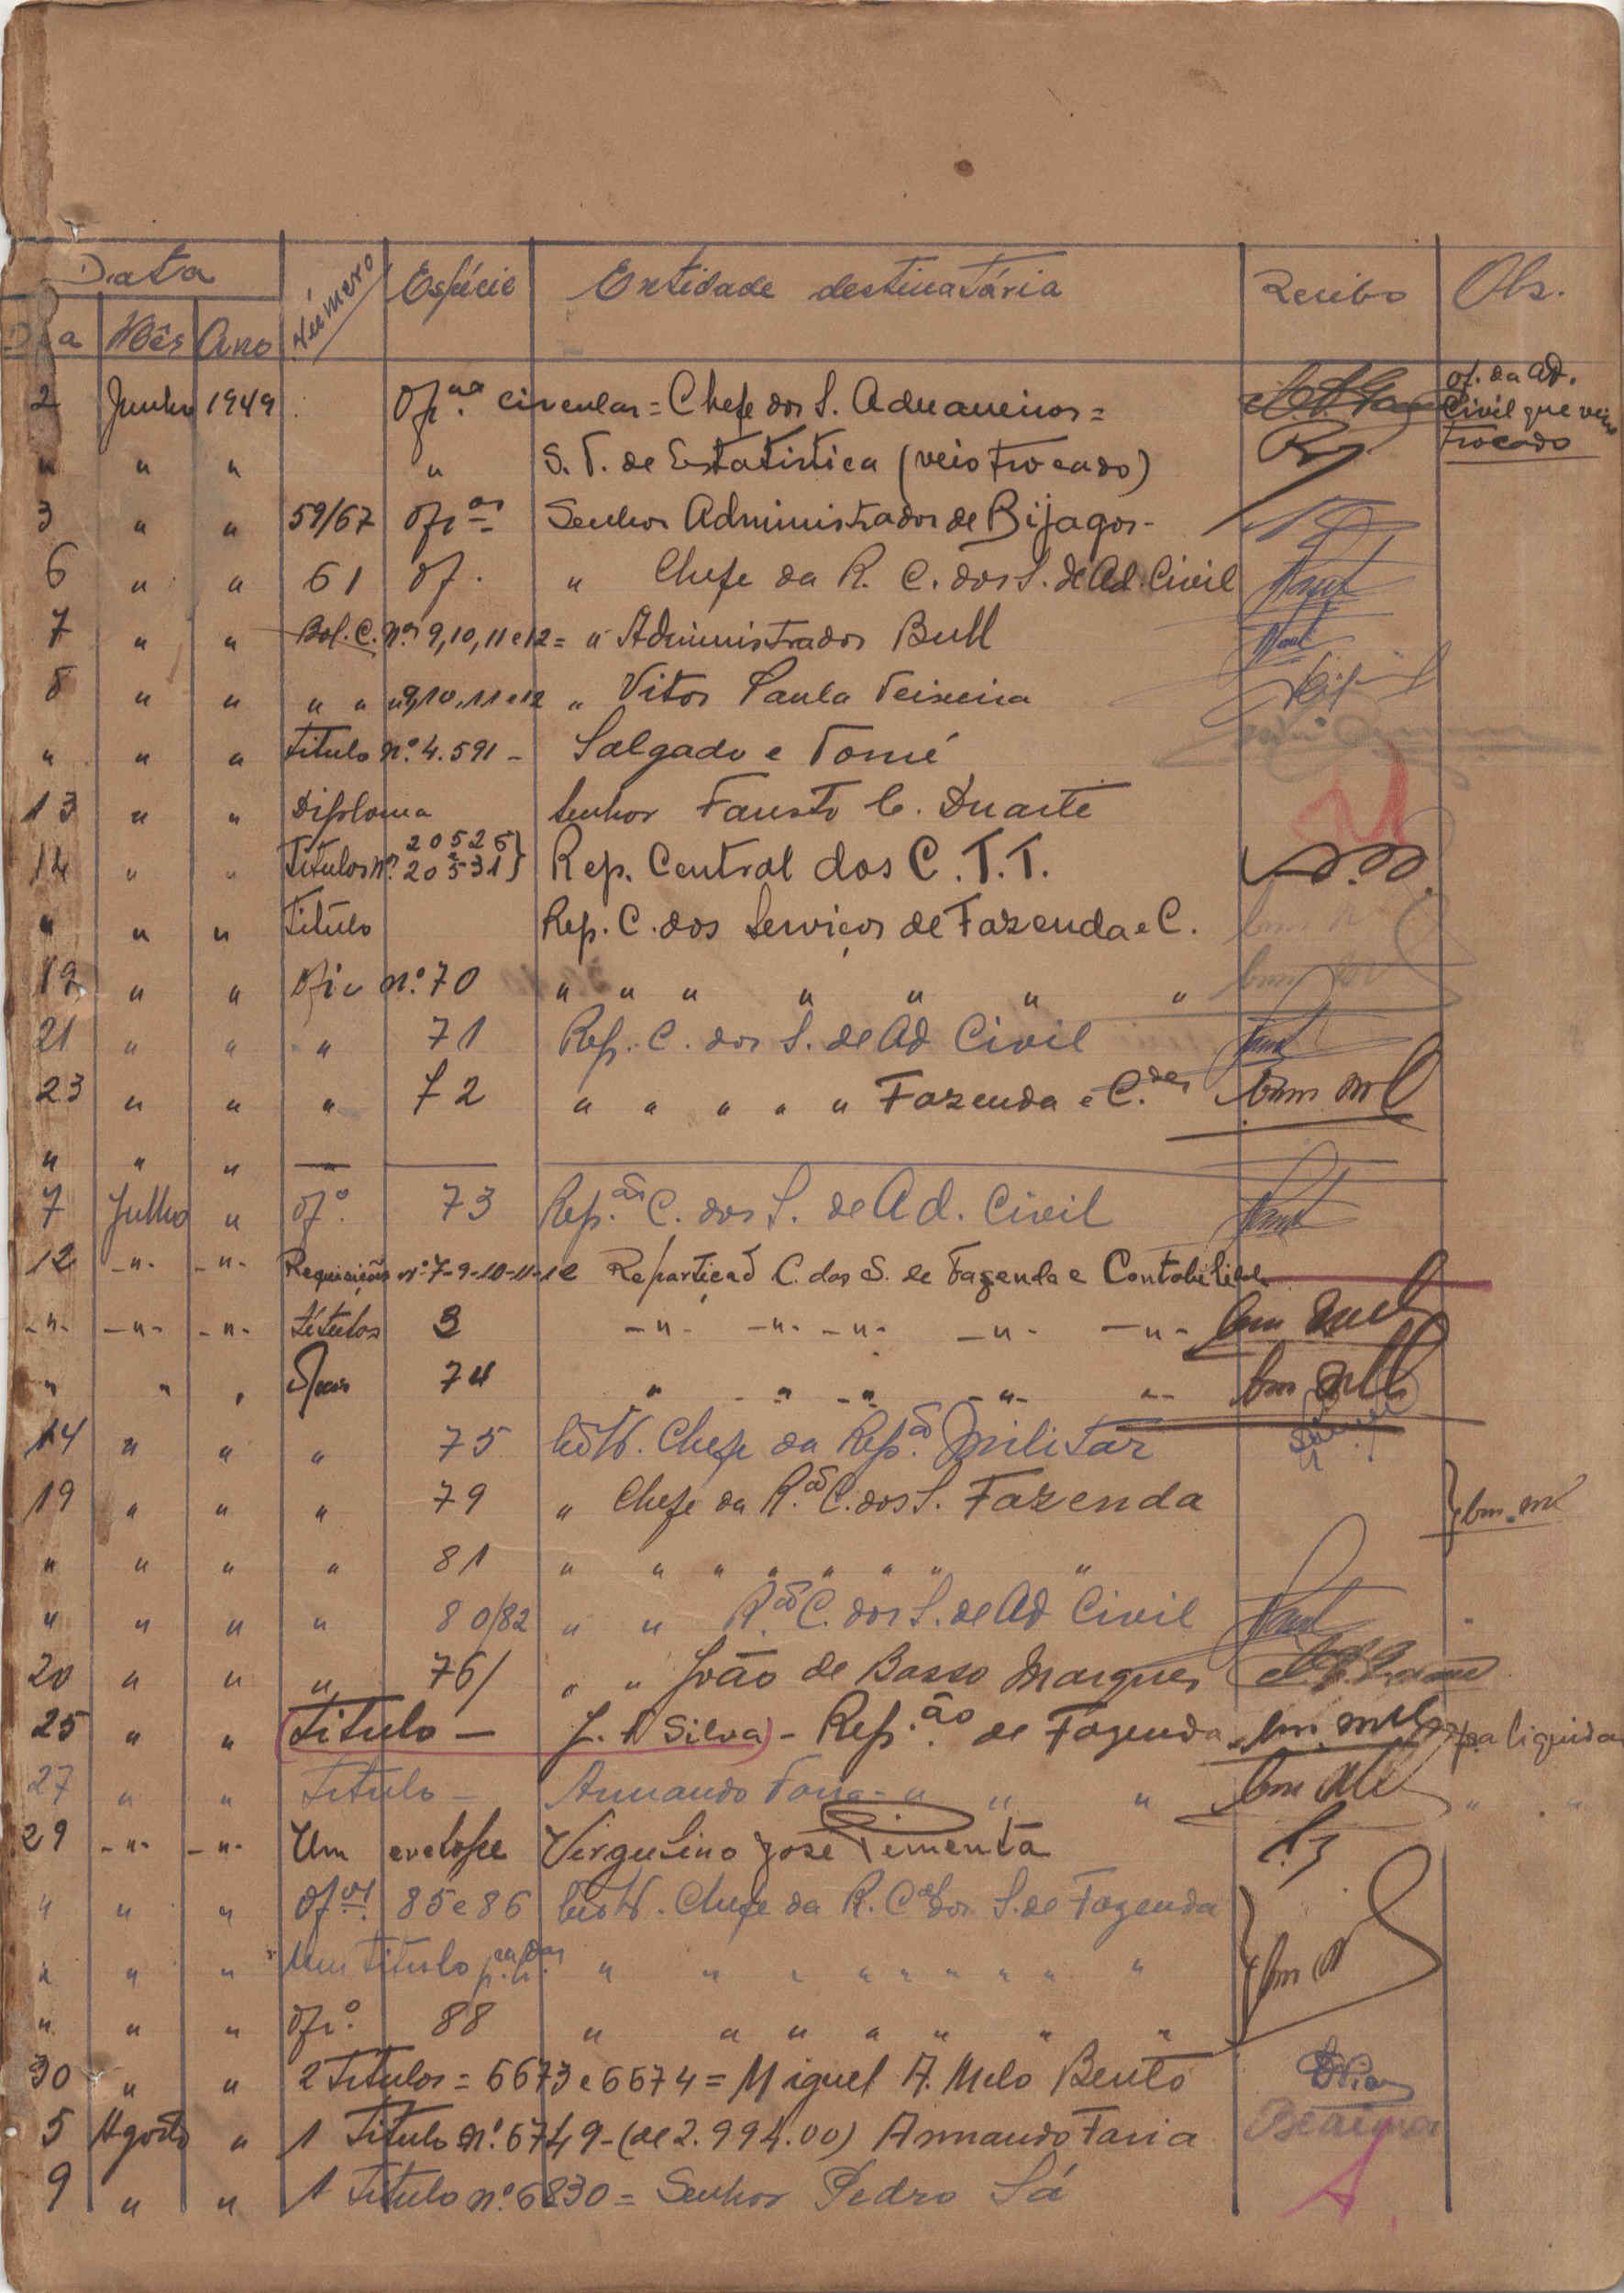 Data Número Espécie Entidade destinatária Recibo Obs.
Dia Mês Ano
2 Junho 1949 Ofi.os circular = Chefe dos S. Aduaneiros = of. da Ad. Civil que veio trocado
" " " " S. T. de Estatistica (veio trocado)
3 " " 59/67 ofi.os Senhor Administrador de Bijagos -
6 " " 61 of. " Chefe da R. C. dos S. de Ad. Civil
7 " " Bol. C. nos 9,10,11 e 12 = " Administrador Bull
8 " " " " " 9,10,11 e 12 " Vitor Paula Teixeira
" " " Titulo nº 4.591 - Salgado e Tomé
13 " " Diploma Senhor Fausto C. Duarte
14 " " Titulos nº 20526 20531} Rep. Central dos C.T.T.
" " " Titulo Rep. C. dos Serviços de Fazenda e C.
19 " " Ofio nº 70 " " " " " " "
21 " " " 71 Rep. C. dos S. de Ad Civil
23 " " " 72 " " " " " Fazenda e C.des
" " " — —
7 Julho " ofº. 73 Rep.ão C. dos S. de Ad. Civil
12 -"- -"- Requisições nº 7-9-10-11-12 Repartição C. dos S. de Fazenda e Contabilidade
-"- -"- -"- titulos 3 -"- -"- -"- -"- -"-
" " " 74 " " " " "
14 " " " 75 Chefe da Rep.ão Militar
19 " " " 79 " Chefe da R.ão C. dos S. Fazenda
" " " " 81 " " " " " " " "
" " " " 80/82 " " R.ão C. dos S. de Ad Civil
20 " " " 76/ " " João de Basso Marques
25 " " (Titulo — J. A Silva) - Rep.ão de Fazenda pa liquidar
27 " " Titulo - Armando Faria - " " " " "
29 -"- -"- Um evelope Virgulino José Pimenta
" " " Of.os 85 e 86 Chefe da R. C. dos S. de Fazenda
" " " Um titulo " " " " " " " " "
" " " Ofiº. 88 " " " " " " "
30 " " 2 Titulos = 6673 e 6674 = Miguel A. Melo Bento
5 Agosto " 1 Titulo nº 6749 - (de 2.994.00) Armando Faria
9 " " 1 Titulo nº 6830 = Senhor Pedro Sá